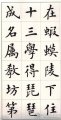 在蝦蟆陵下住
十三學得琵琶
成名屬教坊第